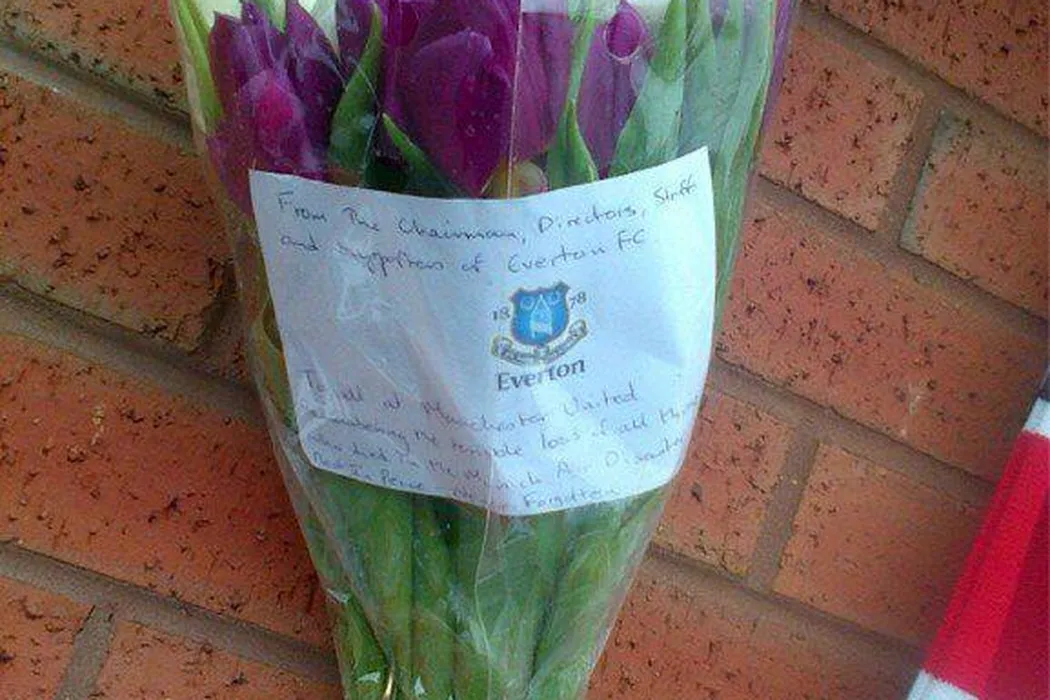 From The Chairman, Directors, Staff
and supporters of Everton FC
18 78
Everton
To all at Manchester United
Remembering the terrible loss of all those
who died in the Munich Air Disaster
Rest In Peace Forgotten